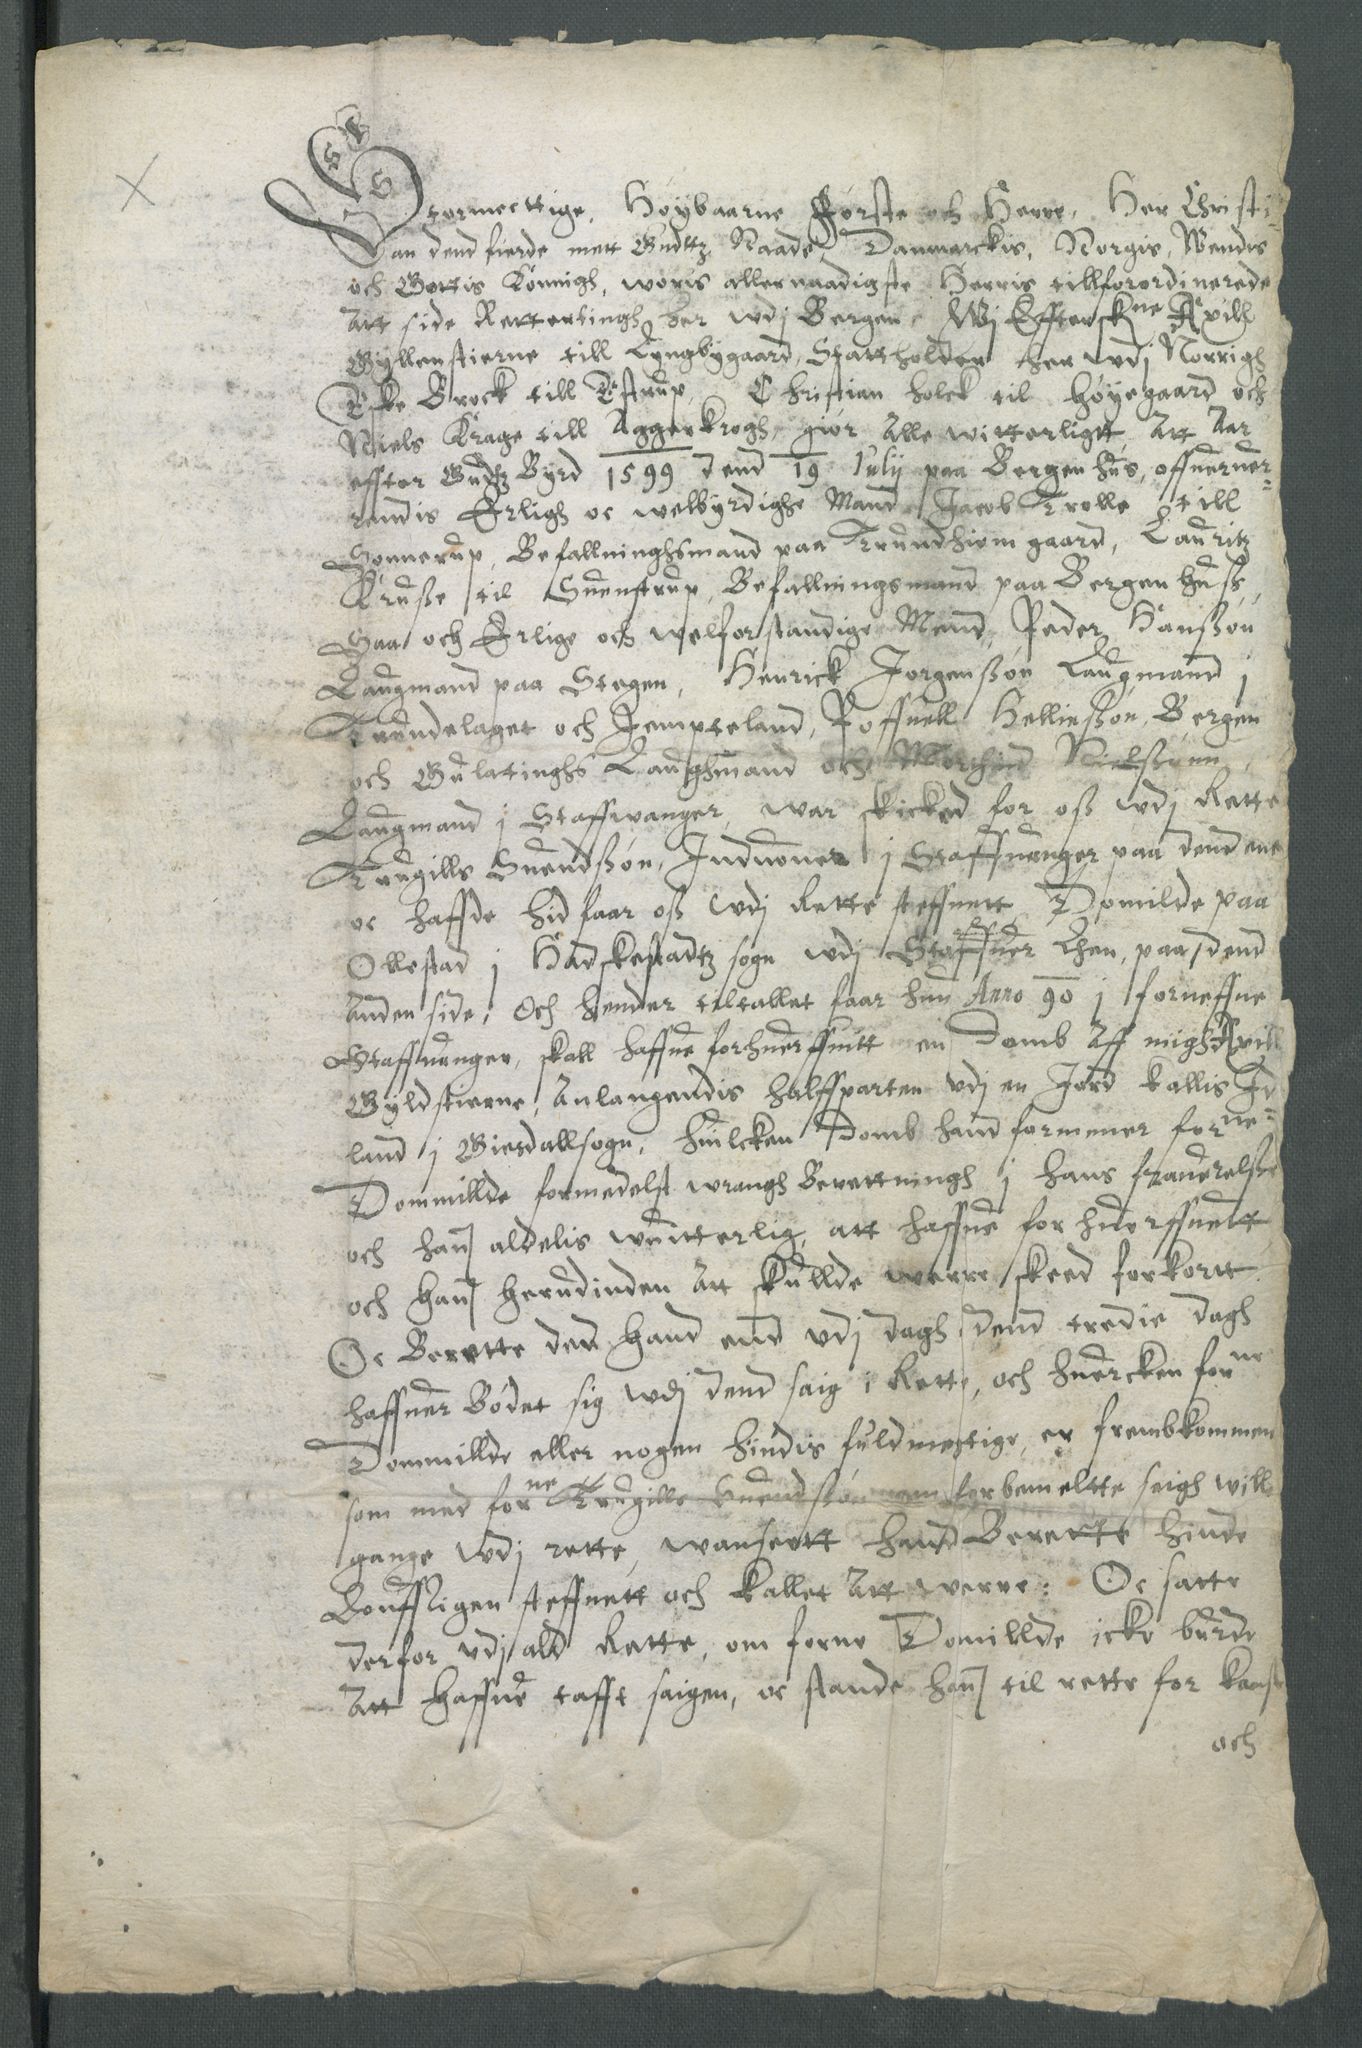 Stormecttige, Høybaarne Første och Herre, Her Christi-
an dend fierde mett Gudtz Naade, Danmarckis, Norgis, Wendis
och Gottis Konnigh, woris allernaadigste Herris tillforordinerede
Att side Rettertingh her wdj Bergen, Wj Effterskne Axill
Gyllenstierne till Lyngbygaard, Stattholder her wdj Norrigh
Eske Brock till Estrup, Christian holck til Høyegaard och
Niels Krage till Aggerkrogh, giør Alle witterligtt Att Aar
effter Gudtz Byrd 1599 dend 19 Iulij paa Bergenhus, offueruer-
rendis Erligh oc welbyrdighe Mand Jacob Trolle till
Sonnerup, Befallninghsmand paa Trundhiem gaard, Lauritz
Kruße til Suenstrup, Befallningsmand paa Bergen huß,
Saa och Erlige och welforstandige Mend, Peder Hanßøn
Laugmand paa Stegen, Henrick Jørgenßøn Laugmand j
Trundelaget och Jempteland, Poffuell Helließøn, Bergen
och Gulatinghs Laughmand och Nielßønn,
Laugmand j Staffwanger, war skicked for oß wdj Rette
Trugills Suendßøn, Induoner j Staffuanger paa dend ene
oc haffde hid faar oß wdj Rette steffnett Domilde paa
Ollestad j Hadskestadtz sogn wdj Staffuer Lhen, paa dend
Anden side, Och hender tiltallet faar hun Anno 90 j forneffne
Staffuanger, skall haffue forhuerffuitt en Domb Aff migh Axill
Gyldstierne, Anlangendis halffparten vdj en Jord kallis Id
land j Giesdallsogn, huilcken Domb hand formener forne-
Dommillde formedelst wrangh Berettningh j hans frauerelße
och han aldelis wuitterlig, att haffue forhuerffuett
och han herudinden Att skullde werre skeed forkortt
Oc Berette den hand end vdj dagh dend tredie dagh
haffuer Bødet sig wdj dend saig i Rette, och huercken forne
Dommillde eller nogen hindis fuldmectige, er frembkommen
som med forne Trugills Suendßøn forbemeltte saigh will
gange wdj rette, wanseett hand Berette hinde
Louffligen steffnett och kallet Att werre: Oc satte
derfor vdj ald Rette, om forne Domillde icke burde
Att haffue tafft saigen, oc stande han til rette for kaast
och